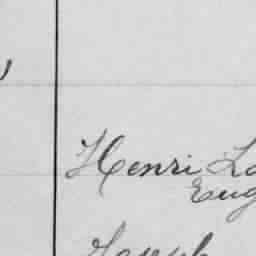 Henri La
Eug
Joseph